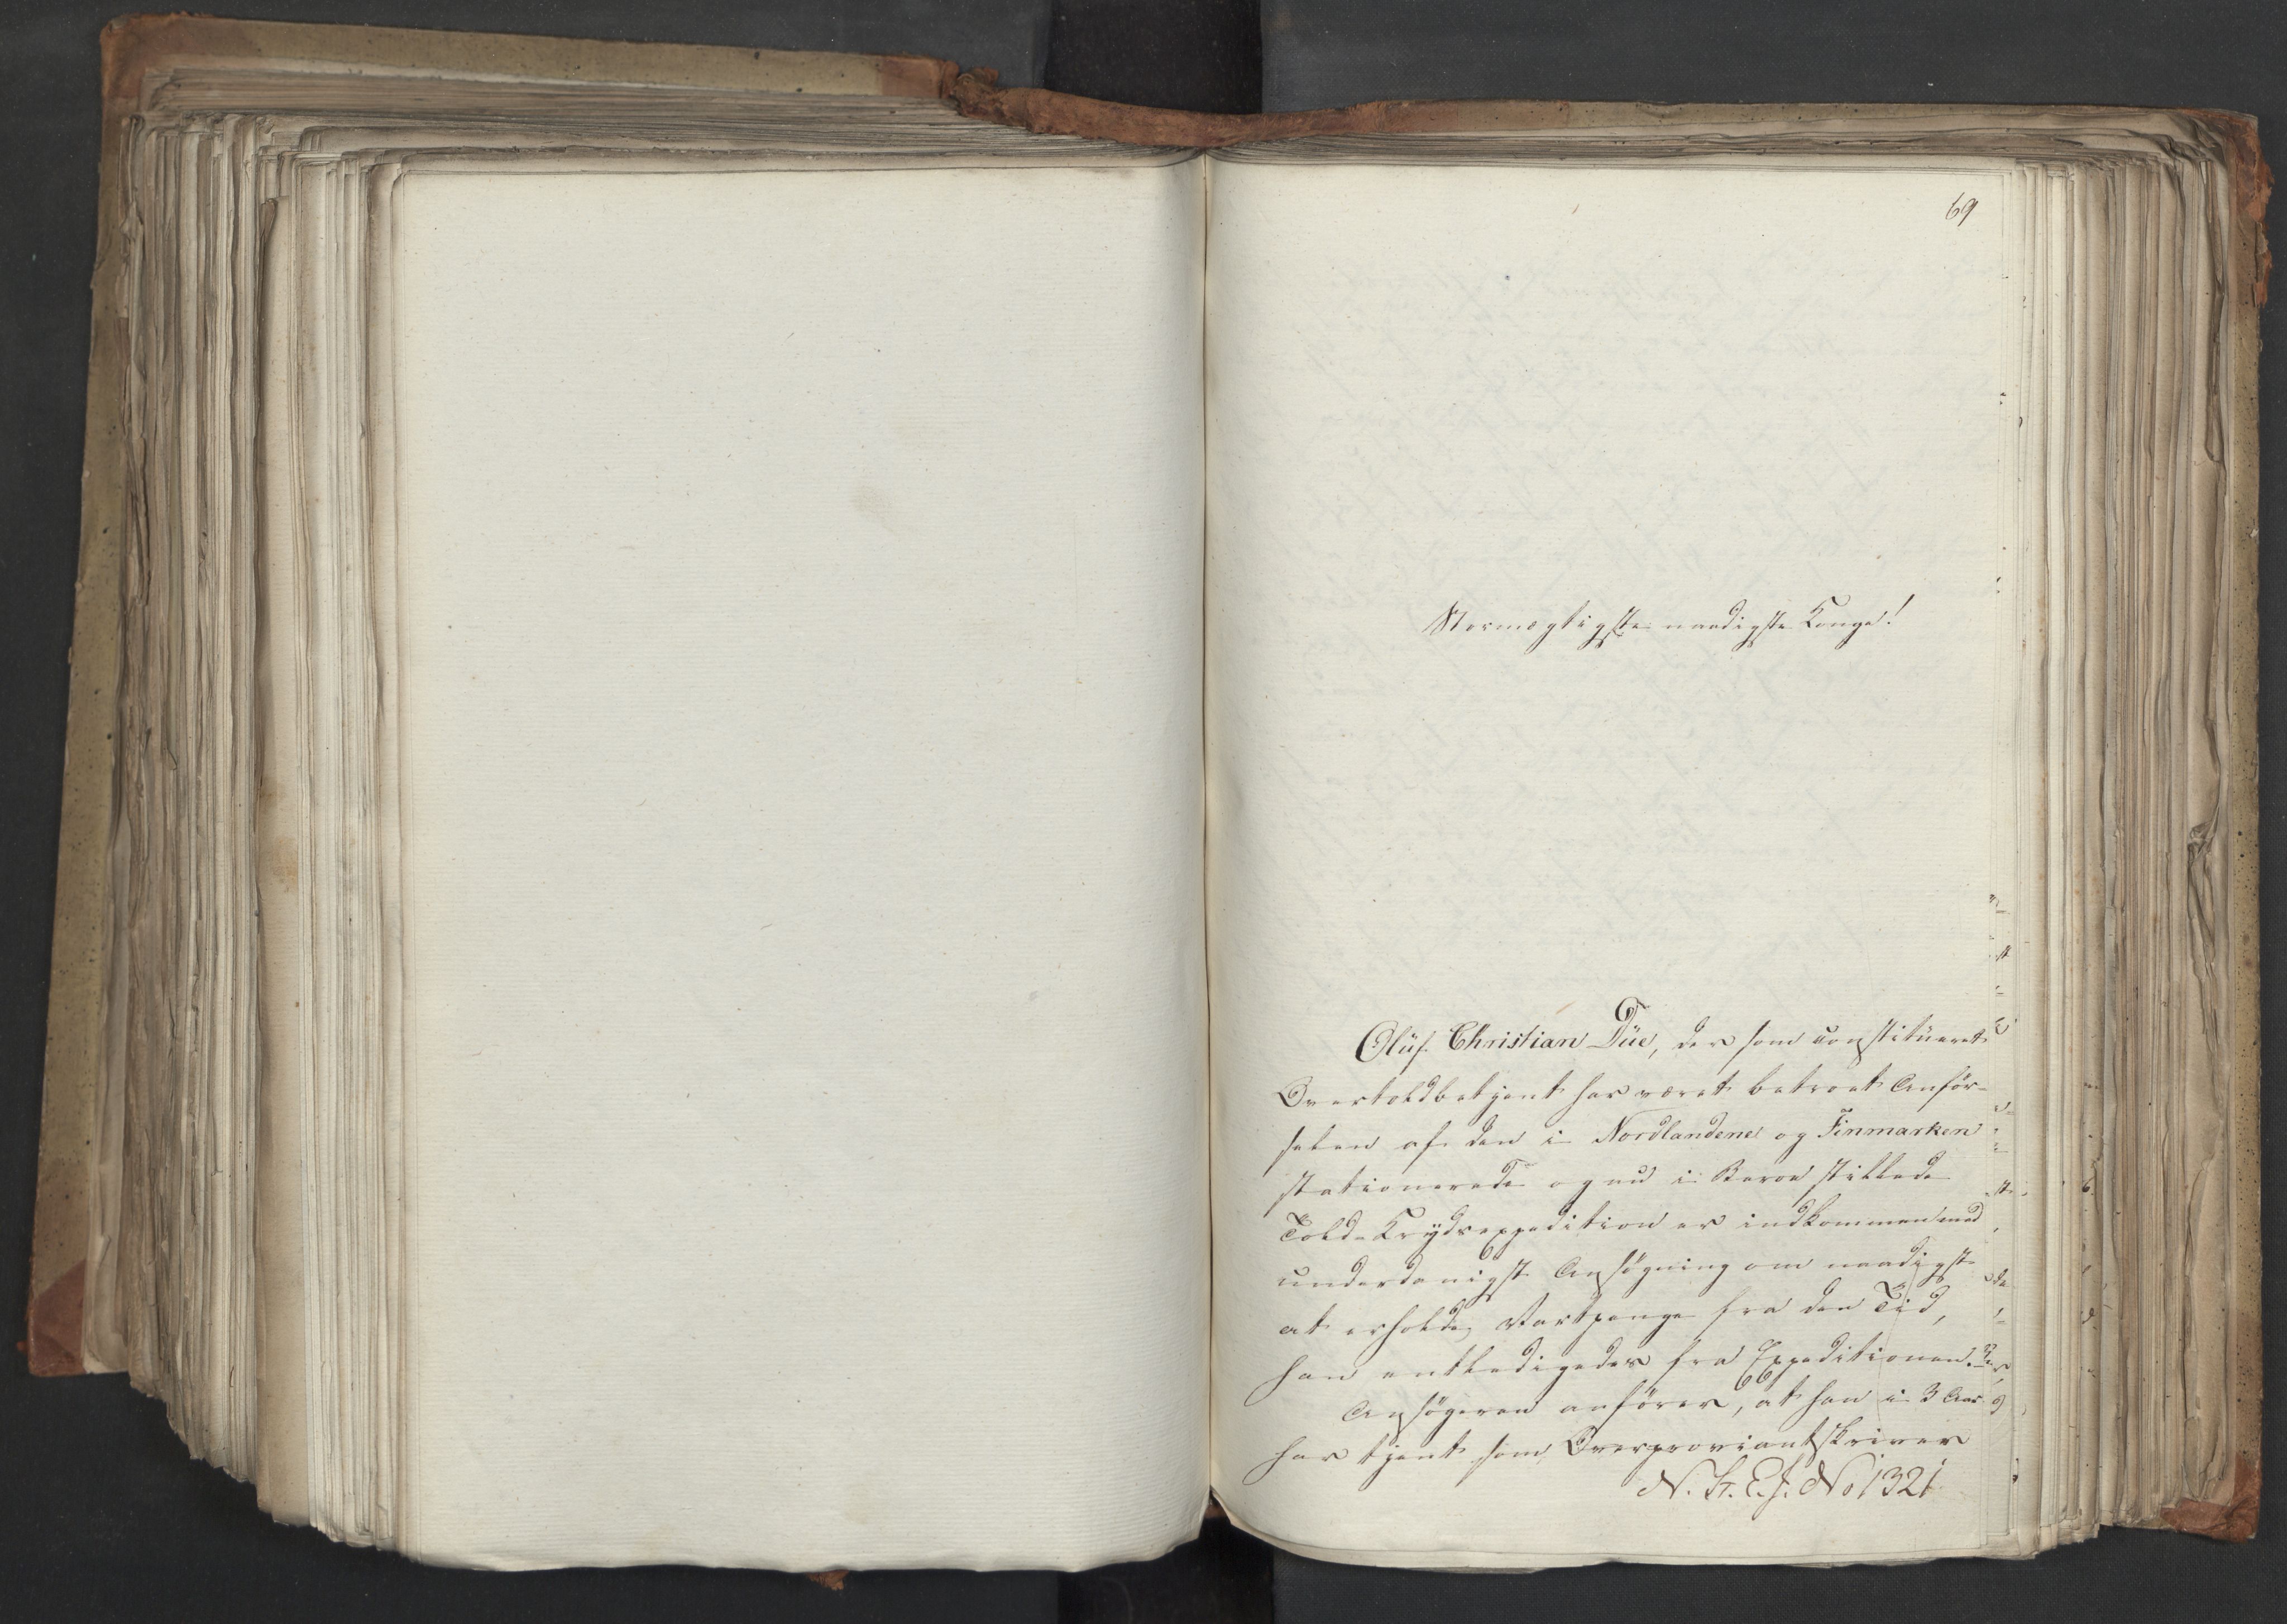 69
Stormægtigste naadigste Konge!
Oluf Christian Düe, der som constitueret
Overtoldbetjent har været betroet Anför-
selen af den i Nordlandene og Finmarken
stationerede og nu i Beroe stillede
Told-Krydsexpedition er indkommen med
underdanigst Ansögning om naadigst
at erholde Vartpenge fra den Tid,
han entledigedes fra Expeditionen.
Ansögeren anförer, at han i 3 Aar
har tjent som Overproviantskriver
N. H. E. J. No 1321